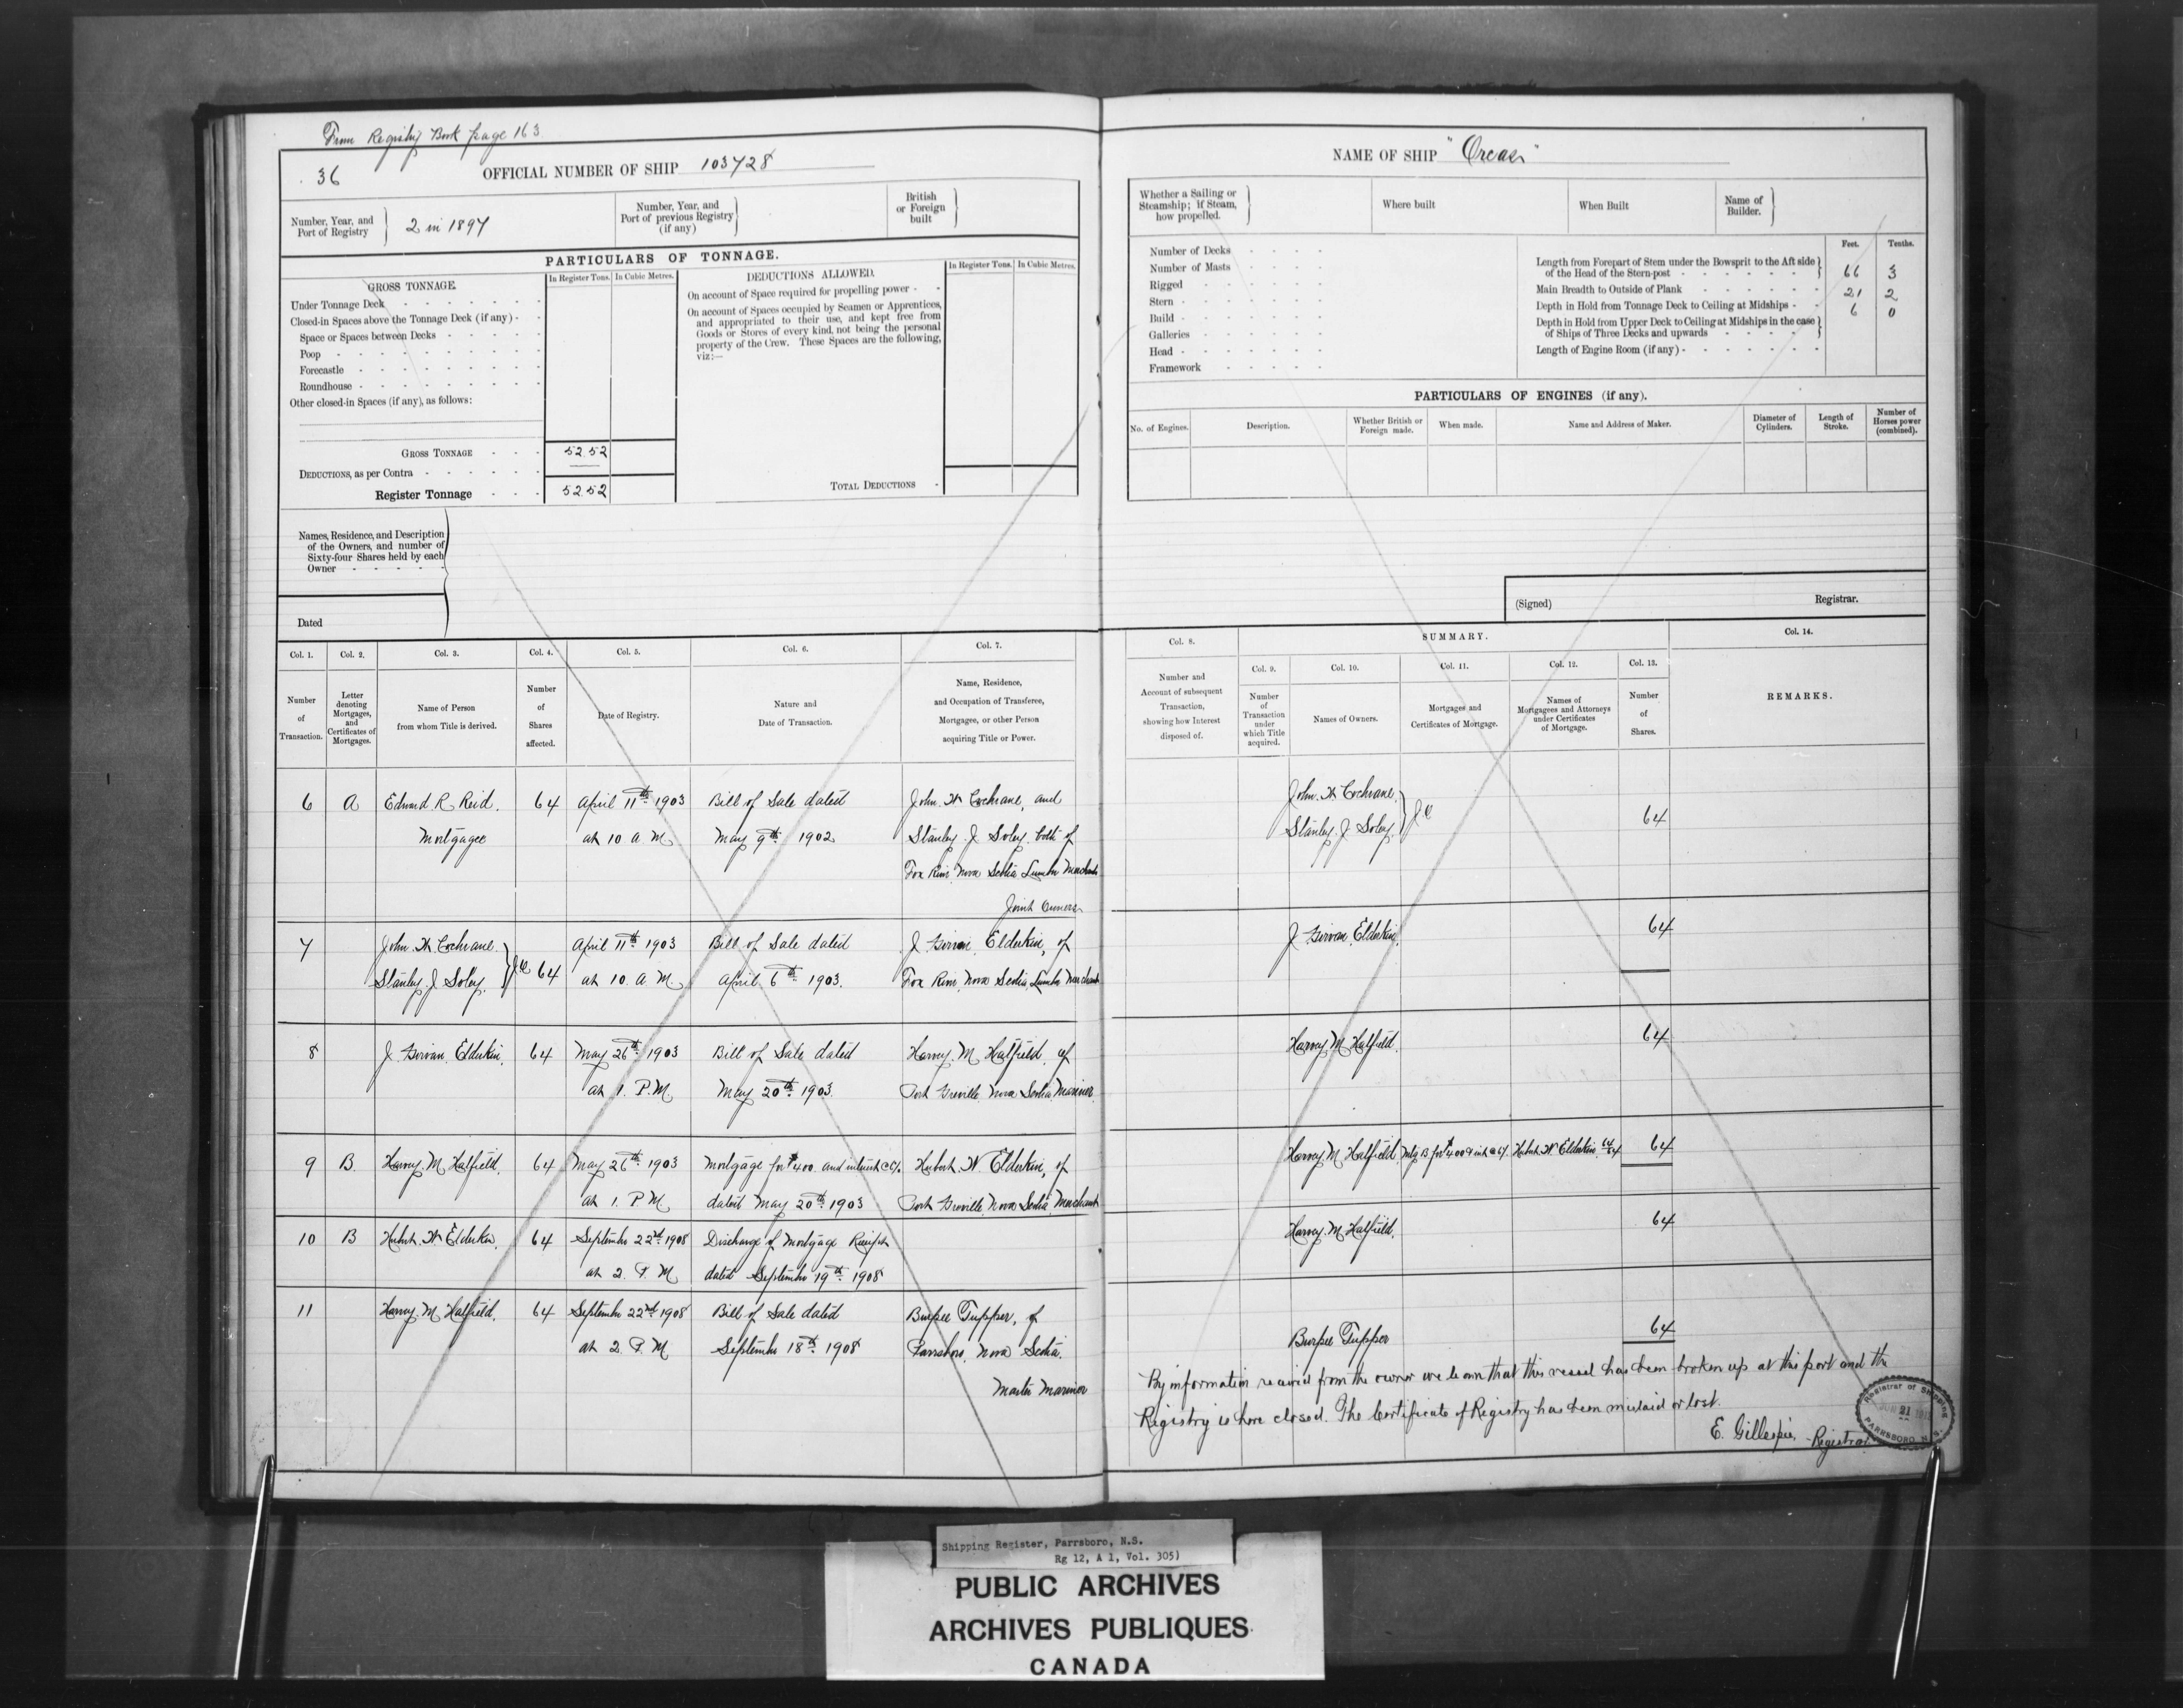 From Registry Book page 163
36
OFFICIAL NUMBER OF SHIP 103728
Number, Year, and Port of Registry } 2 in 1897
Number, Year, and Port of previous Registry (if any) }
British or Foreign built }
PARTICULARS OF TONNAGE.
GROSS TONNAGE
In Register Tons. In Cubic Metres.
DEDUCTIONS ALLOWED.
In Register Tons. In Cubic Metres.
Under Tonnage Deck
Closed-in Spaces above the Tonnage Deck (if any)
Space or Spaces between Decks
Poop
Forecastle
Roundhouse
Other closed-in Spaces (if any), as follows:
On account of Space required for propelling power
On account of Spaces occupied by Seamen or Apprentices,
and appropriated to their use, and kept free from
Goods or Stores of every kind, not being the personal
property of the Crew. These Spaces are the following,
viz:—
GROSS TONNAGE 52.52
DEDUCTIONS, as per Contra
Register Tonnage 52.52
TOTAL DEDUCTIONS
Names, Residence, and Description
of the Owners, and number of
Sixty-four Shares held by each
Owner
Dated
Col. 1. Col. 2. Col. 3. Col. 4. Col. 5. Col. 6. Col. 7.
Number of Transaction.
Letter denoting Mortgages, and Certificates of Mortgages.
Name of Person from whom Title is derived.
Number of Shares affected.
Date of Registry.
Nature and Date of Transaction.
Name, Residence, and Occupation of Transferee, Mortgagee, or other Person acquiring Title or Power.
6 A Edward R Reid. 64 April 11th 1903 Bill of Sale dated John. W Cochrane, and
Mortgagee at 10 a. M May 9th 1902 Stanley. J Soley. both of
Fox River Nova Scotia Lumber Merchants
Joint Owners
7 John. W Cochrane. April 11th 1903 Bill of Sale dated J Girvan Elderkin, of
Stanley. J Soley. } J O 64 at 10. a. M April 6th 1903. Fox River, Nova Scotia, Lumber Merchant
8 J Girvan. Elderkin. 64 May 26th 1903 Bill of Sale dated Harvey. M Hatfield. of
at 1. P.M May 20th 1903. Port Greville Nova Scotia, Mariner.
9 B. Harvey. M Hatfield. 64 May 26th 1903 Mortgage for $400 and interest @ 6%. Hubert. W. Elderkin, of
at 1. P M. dated May 20th 1903 Port Greville, Nova Scotia, Merchant
10 B Hubert. W Elderkin. 64 September 22nd 1908 Discharge of Mortgage Receipt
at 2. P. M dated September 19th 1908
11 Harvey. M Hatfield. 64 September 22nd 1908 Bill of Sale dated Burpee Tupper, of
at 2 P. M September 18th 1908 Parrsboro, Nova Scotia.
Master Mariner
NAME OF SHIP
Whether a Sailing or Steamship; if Steam, how propelled. }
Where built
When Built
Name of Builder. }
Number of Decks
Number of Masts
Rigged
Stern
Build
Galleries
Head
Framework
Feet. Tenths.
Length from Forepart of Stem under the Bowsprit to the Aft side
of the Head of the Stern-post 66 3
Main Breadth to Outside of Plank 21 2
Depth in Hold from Tonnage Deck to Ceiling at Midships 6 0
Depth in Hold from Upper Deck to Ceiling at Midships in the case
of Ships of Three Decks and upwards
Length of Engine Room (if any)
PARTICULARS OF ENGINES (if any).
No. of Engines. Description. Whether British or Foreign made. When made. Name and Address of Maker. Diameter of Cylinders. Length of Stroke. Number of Horses power (combined).
(Signed) Registrar.
Col. 8. SUMMARY. Col. 14.
Col. 9. Col. 10. Col. 11. Col. 12. Col. 13.
Number and Account of subsequent Transaction, showing how Interest disposed of.
Number of Transaction under which Title acquired.
Names of Owners.
Mortgages and Certificates of Mortgage.
Names of Mortgagees and Attorneys under Certificates of Mortgage.
Number of Shares.
REMARKS.
John. W Cochrane.
Stanley. J Soley. } J O 64
J Girvan Elderkin. 64
Harvey. M Hatfield. 64
Harvey M Hatfield. Mtg B for $400 & int @ 6%. Hubert W. Elderkin 64/64 64
Harvey. M Hatfield. 64
Burpee Tupper 64
By information received from the owner we learn that this vessel has been broken up at this port and the
Registry is here closed. The Certificate of Registry has been mislaid or lost.
E. Gillespie, Registrar
Registrar of Shipping
21
PARRSBORO, N.S.
Shipping Register, Parrsboro, N.S.
Rg 12, A 1, Vol. 305)
PUBLIC ARCHIVES
ARCHIVES PUBLIQUES
CANADA